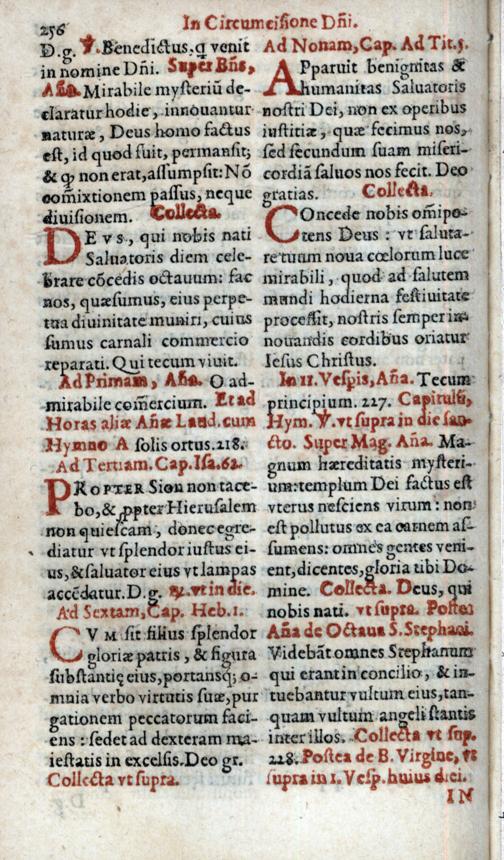 256
In Circumcisione Dñi.
D.g. ℣. Benedictus, q̃ venit
in nomine Dñi. Super Bñs,
Aña. Mirabile mysteriũ de-
claratur hodie, innouantur
naturæ, Deus homo factus
est, id quod fuit, permansit;
& qꝫ non erat, assumpsit: Nõ
com̃ixtionem passus, neque
diuisionem. Collecta.
DEVS, qui nobis nati
Saluatoris diem cele-
brare cõcedis octauum: fac
nos, quæsumus, eius perpe-
tua diuinitate muniri, cuius
sumus carnali commercio
reparati. Qui tecum viuit.
Ad Primam, Aña. O ad-
mirabile com̃ercium. Et ad
Horas aliæ Añæ Laud. cum
Hymno A solis ortus. 218.
Ad Tertiam. Cap. Isa. 62.
PROPTER Sion non tace-
bo, & ꝓpter Hierusalem
non quiescam, donec egre-
diatur vt splendor iustus ei-
us, & saluator eius vt lampas
accẽdatur. D.g. ℞. vt in die.
Ad Sextam, Cap. Heb. 1.
CVM sit filius splendor
gloriæ patris, & figura
substantię eius, portansq; o-
mnia verbo virtutis suæ, pur
gationem peccatorum faci-
ens: sedet ad dexteram ma-
iestatis in excelsis. Deo gr.
Collecta vt supra.
Ad Nonam, Cap. Ad Tit. 3.
APparuit benignitas &
humanitas Saluatoris
nostri Dei, non ex operibus
iustitiæ, quæ fecimus nos,
sed secundum suam miseri-
cordiã saluos nos fecit. Deo
gratias. Collecta.
COncede nobis om̃ipo-
tens Deus: vt saluta-
re tuum noua cœlorum luce
mirabili, quod ad salutem
mundi hodierna festiuitate
processit, nostris semper in-
nouandis cordibus oriatur
Iesus Christus.
In 11. Vespis, Aña. Tecum
principium. 227. Capitulũ,
Hym. ℣. vt supra in die san-
cto. Super Mag. Aña. Ma-
gnum hæreditatis mysteri-
um: templum Dei factus est
vterus nesciens virum: non
est pollutus ex ea carnem as-
sumens: omnes gentes veni-
ent, dicentes, gloria tibi Do-
mine. Collecta. Deus, qui
nobis nati. vt supra. Postea
Aña de Octaua S. Stephani.
Videbãt omnes Stephanum
qui erant in concilio, & in-
tuebantur vultum eius, tan-
quam vultum angeli stantis
inter illos. Collecta vt sup.
228. Postea de B. Virgine, vt
supra in 1. Vesp. huius diei.
IN